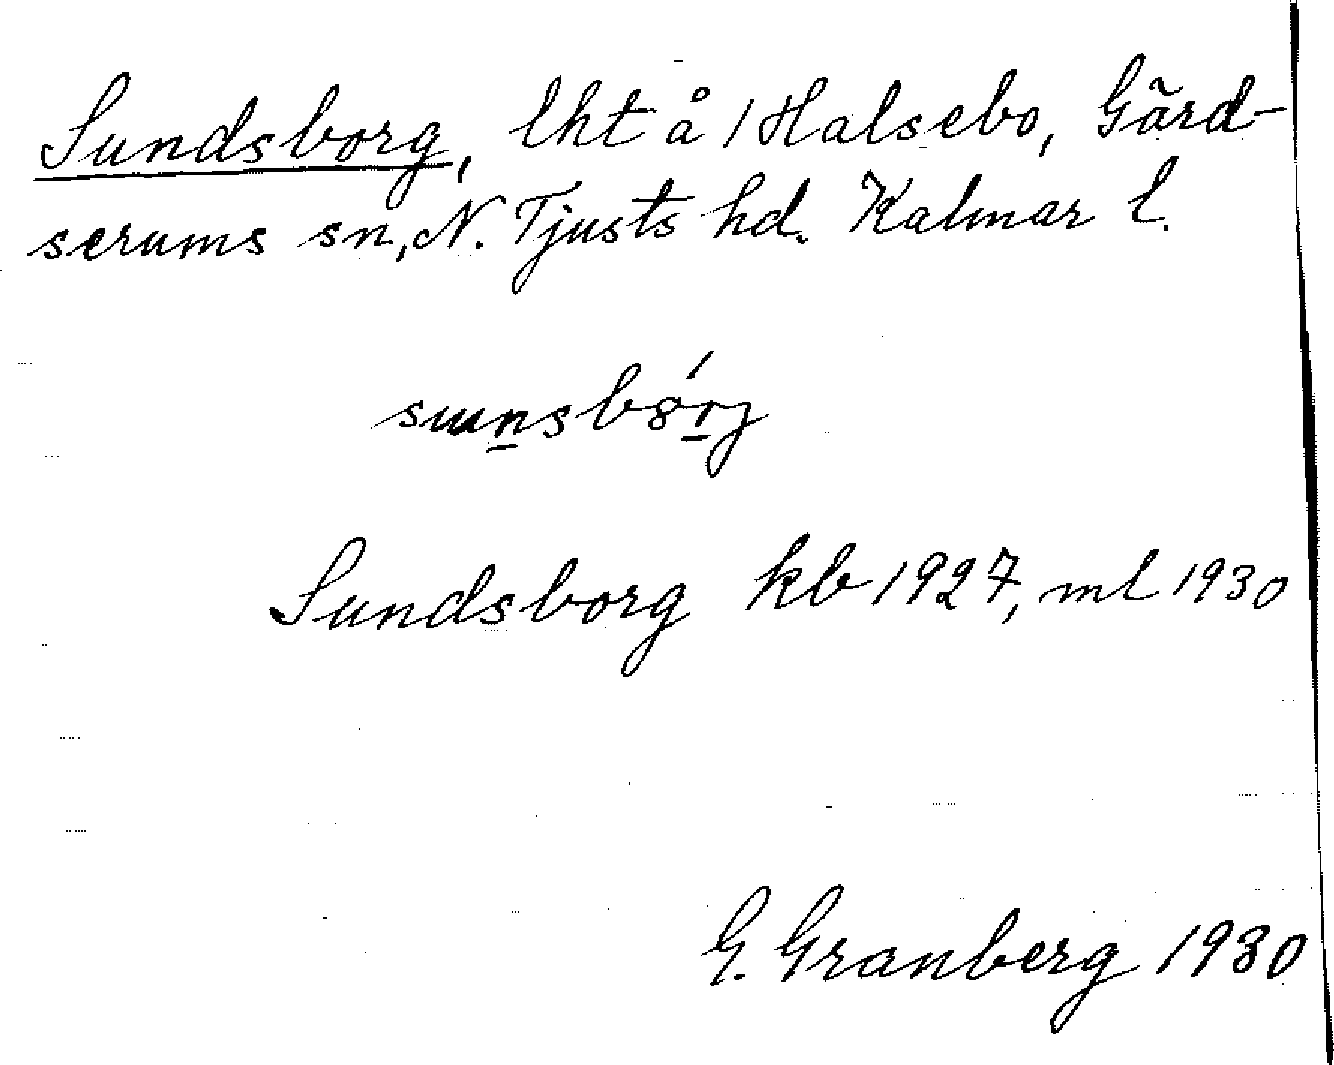 Sundsborg, lht å 1 Halsebo, Gärd-
serums sn, N. Tjusts hd. Kalmar l.
sunsbórj
Sundsborg kb 1927, ml 1930
G. Granberg 1930